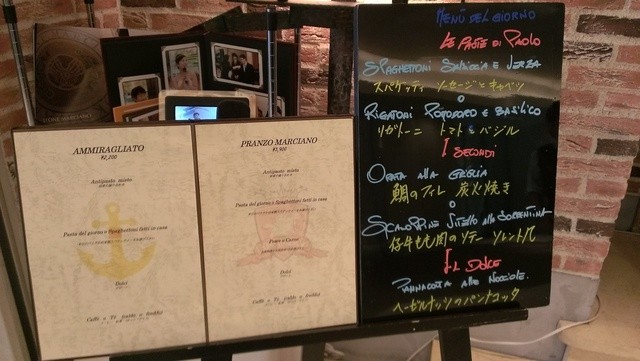 AMMIRAGLIATO
¥2,200
Antipasto misto
Pasta del giorno o Spaghettoni fatti in casa
Dolci
Caffè o Tè
PRANZO MARCIANO
Antipasto misto
Pasta del giorno o Spaghettoni fatti in casa
Pesce o Carne
Dolci
Caffè o Tè
MENÙ DEL GIORNO
LE PASTE DI PAOLO
SPAGHETTONI SALSICCIA E VERZA
スパゲッティ ソーセージとキャベツ
O
RIGATONI POMODORO E BASILICO
リガトーニ トマトとバジル
I SECONDI
ORATA ALLA GRIGLIA
鯛のフィレ 炭火焼き
O
SCALOPPINE VITELLO ALLA SORRENTINA
仔牛もも肉のソテー ソレント風
IL DOLCE
PANNACOTTA ALLE NOCCIOLE
ヘーゼルナッツのパンナコッタ